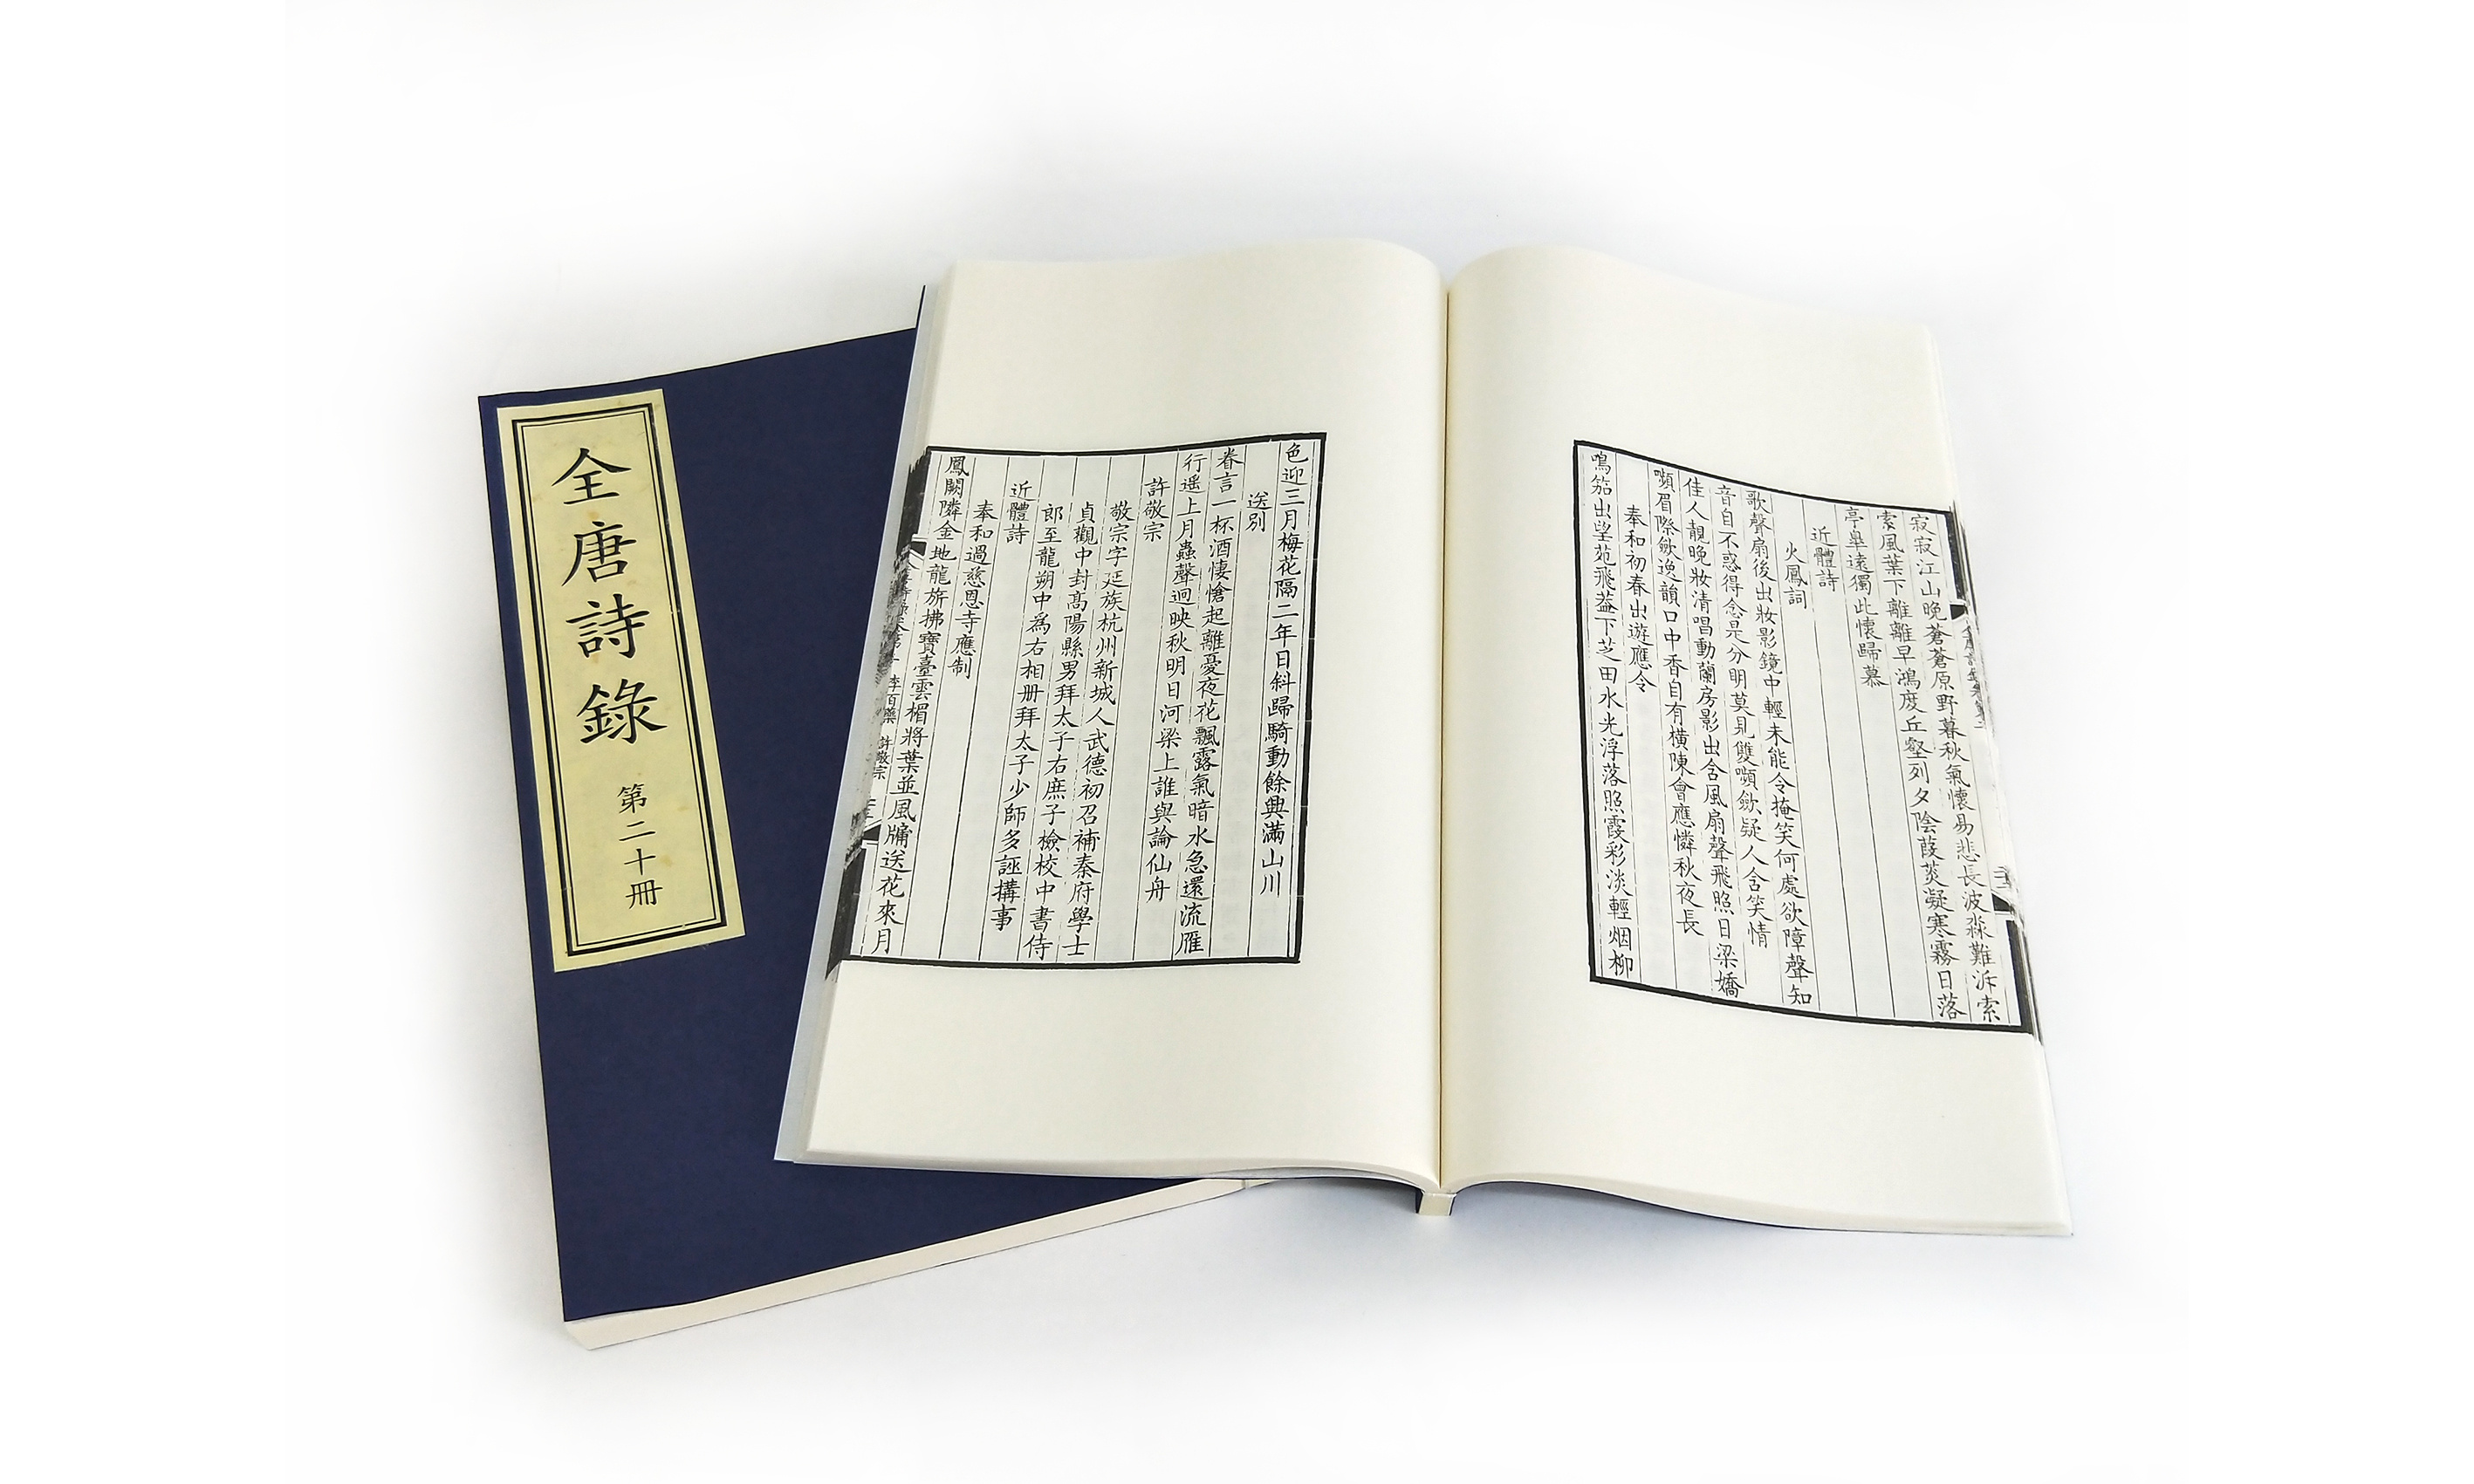 全唐詩錄
第二十冊
寂寂江山晚蒼蒼原野暮秋氣懷易悲長波淼難泝索
索風葉下離離早鴻度丘壑列夕陰葭菼凝寒霧日落
亭皋遠獨此懷歸慕
近體詩
火鳳詞
歌聲扇後出妝影鏡中輕未能令掩笑何處欲障聲知
音自不惑得念是分明莫見雙嚬斂疑人含笑情
佳人靚晚妝清唱動蘭房影出含風扇聲飛照日梁嬌
嚬眉際斂逸韻口中香自有橫陳會應憐秋夜長
奉和初春出遊應令
鳴笳出望苑飛蓋下芝田水光浮落照霞彩淡輕烟柳
色迎三月梅花隔二年日斜歸騎動餘興滿山川
送別
眷言一杯酒悽愴起離憂夜花飄露氣暗水急還流雁
行遥上月蟲聲迥映秋明日河梁上誰與論仙舟
許敬宗
敬宗字延族杭州新城人武德初召補秦府學士
貞觀中封高陽縣男拜太子右庶子檢校中書侍
郎至龍朔中爲右相册拜太子少師多誣搆事
近體詩
奉和過慈恩寺應制
鳳闕隣金地龍旂拂寶臺雲楣將葉並風牖送花來月
李百藥 許敬宗